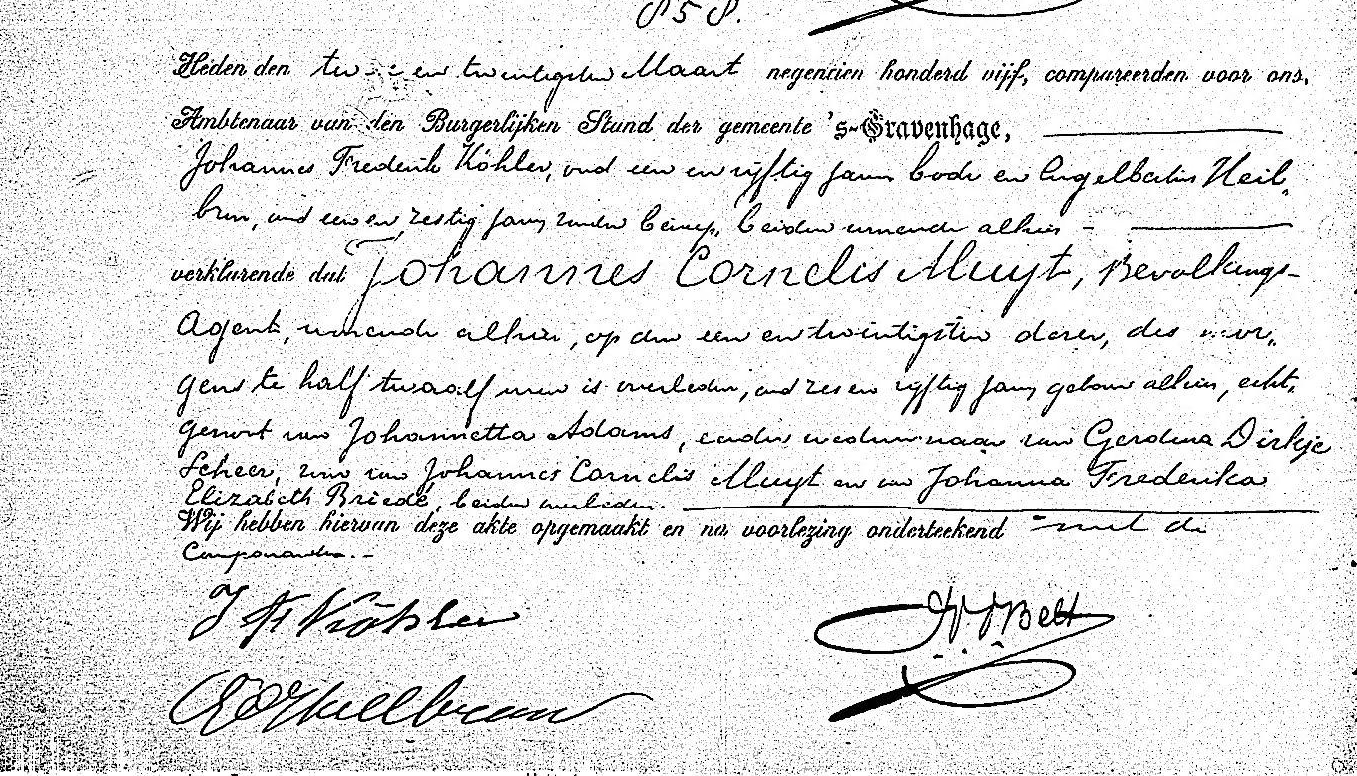 858.
Heden den twee en twintigsten Maart negentien honderd vijf, compareerden voor ons,
Ambtenaar van den Burgerlijken Stand der gemeente 's-Gravenhage,
Johannes Frederik Köhler, oud een en vijftig jaren bode en Engelbertus Heil„
bron, oud een en zestig jaren zonder beroep, beiden wonende alhier -
verklarende dat Johannes Cornelis Muijt, Bevolkings-
Agent, wonende alhier, op den een en twintigsten dezer, des mor„
gens te half twaalf uren is overleden, oud zes en vijftig jaren geboren alhier, echt„
genoot van Johannetta Adams, eerder weduwnaar van Gerdina Dirkje
Scheer, zoon van Johannes Cornelis Muijt en van Johanna Frederika
Elizabeth Briedé, beiden overleden.
Wij hebben hiervan deze akte opgemaakt en na voorlezing onderteekend met de
Comparanten. -
J F Köhler
Belt
Heilbron